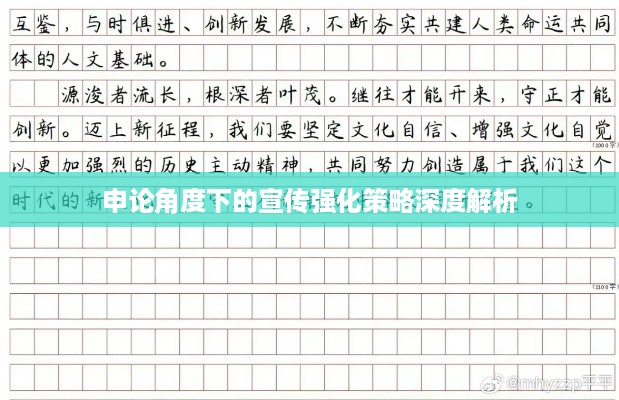 互鉴，与时俱进、创新发展，不断夯实共建人类命运共同
体的人文基础。
源浚者流长，根深者叶茂。继往才能开来，守正才能
创新。迈上新征程，我们要坚定文化自信、增强文化自觉
(1000字)
以更加强烈的历史主动精神，共同努力创造属于我们这个
时代的新
申论角度下的宣传强化策略深度解析
(1100字)
@mhyzzp平平